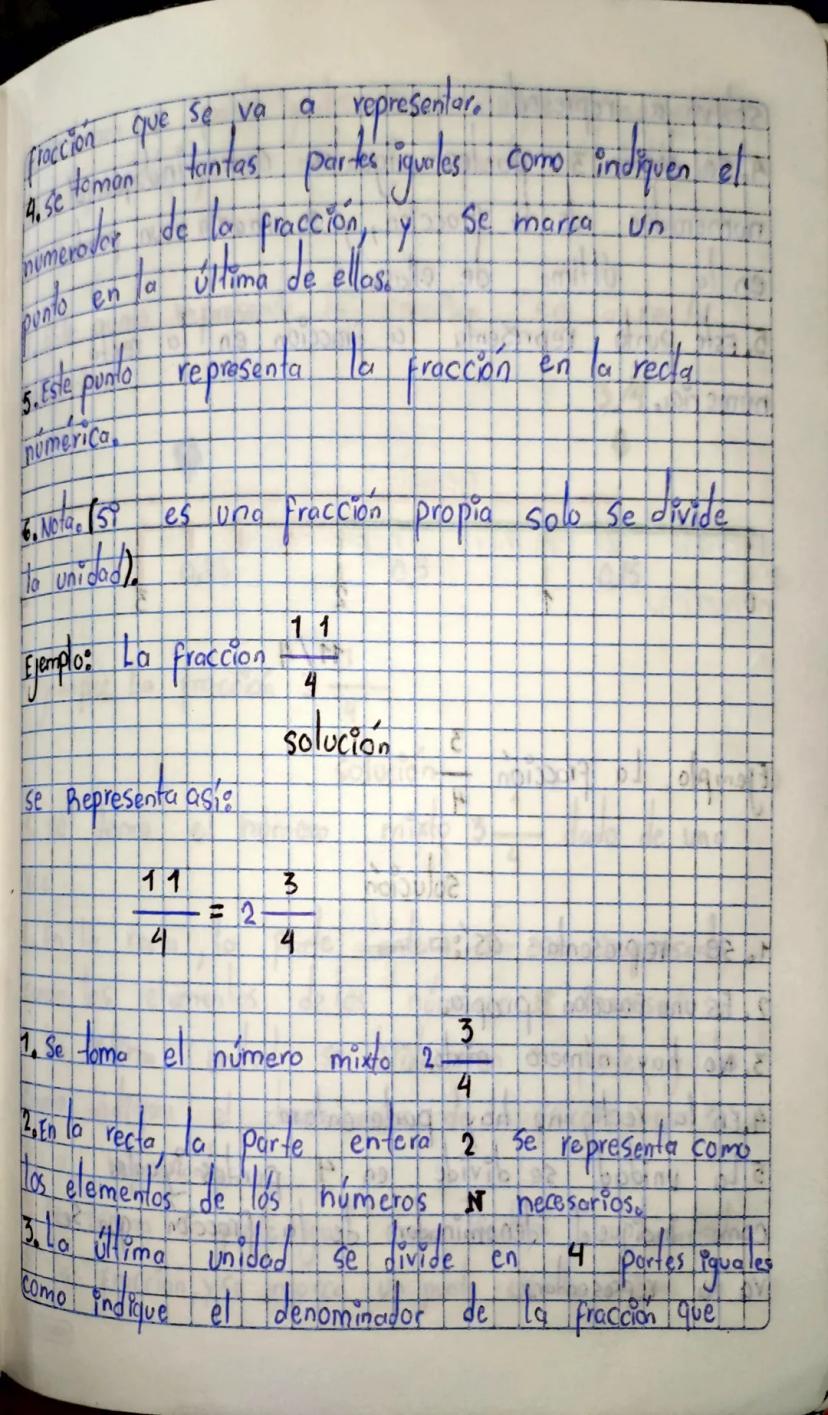 fracción que se va a representar.
4. Se toman tantas partes iguales como indiquen el
numerador de la fracción, y se marca un
punto en la última de ellas.
5. Este punto representa la fracción en la recta
númérica.
6. Nota. (Si es una fracción propia solo se divide
la unidad).
Ejemplo: La fraccion 11/4
solución
se Representa así:
11/4 = 2 3/4
1. Se toma el número mixto 2 3/4
2. En la recta, la parte entera 2 se representa como
los elementos de lós números N necesarios.
3. La última unidad se divide en 4 partes iguales
como indique el denominador de la fracción que